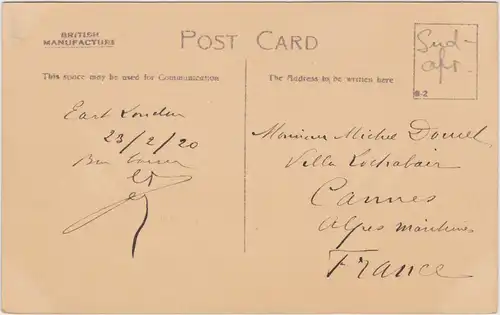 BRITISH
MANUFACTURE
POST CARD
Süd-
afr.
6-2
This space may be used for Communication
The Address to be written here
East London
23/2/20
Monsieur Michel
Villa Lochabair
Cannes
Alpes maritimes
France